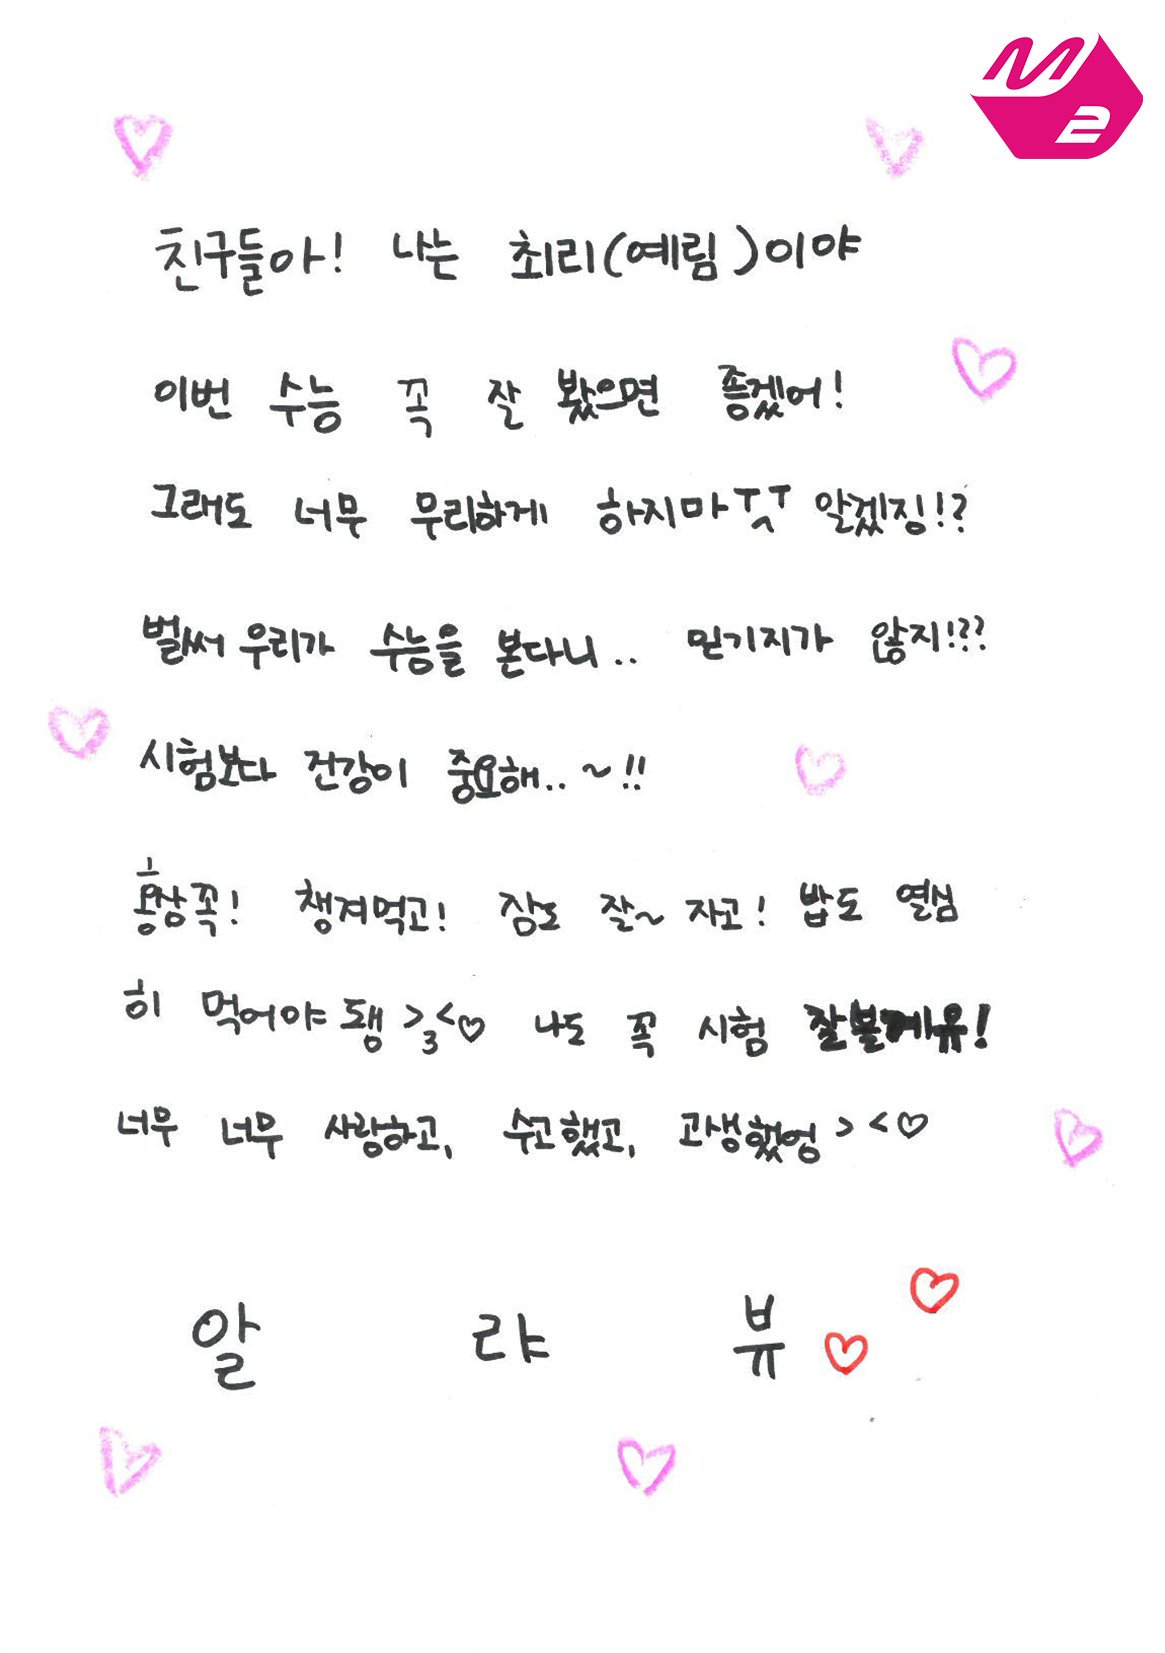 M2
친구들아! 나는 최리(예림)이야
이번 수능 꼭 잘 봤으면 좋겠어!
그래도 너무 무리하게 하지마ㅜㅅㅜ 알겠징!?
벌써 우리가 수능을 본다니.. 믿기지가 않지!??
시험보다 건강이 중요해..~!!
홍삼꼭! 챙겨먹고! 잠도 잘~ 자고! 밥도 열심
히 먹어야 됑>3<♡ 나도 꼭 시험 잘볼게유!
너무 너무 사랑하고, 수고했고, 고생했엉><♡
알 랴 뷰♡♡